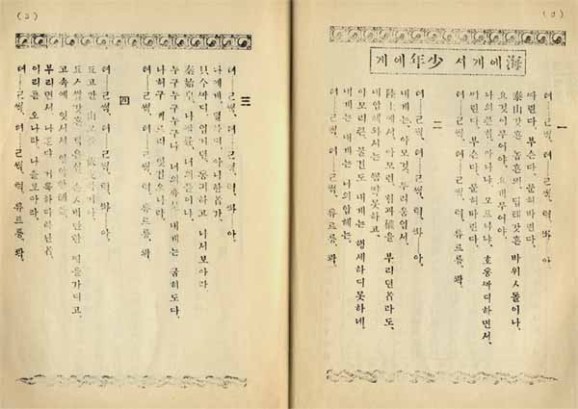 海에게서 少年에게
一
텨……ㄹ썩, 텨……ㄹ썩, 텩, 쏴……아.
따린다, 부슨다, 문허바린다,
泰山갓흔 놉흔뫼, 딥태갓흔 바위ㅅ돌이나,
요것이무어야, 요게무어야,
나의큰힘, 아나냐, 모르나냐, 호통까디하면서,
따린다, 부슨다, 문허바린다,
텨……ㄹ썩, 텨……ㄹ썩, 텩, 튜르릉, 콱.
二
텨……ㄹ썩, 텨……ㄹ썩, 텩, 쏴……아.
내게는, 아모것, 두려움업서,
陸上에서, 아모런, 힘과權을 부리던者라도,
내압헤와서는 꼼땩못하고,
아모리큰, 물건도 내게는 행세하디못하네.
내게는 내게는 나의압헤는.
三
텨……ㄹ썩, 텨……ㄹ썩, 텩, 쏴……아.
나에게, 뎔하디, 아니한者가,
只今까디, 업거던, 통긔하고 나서보아라.
秦始皇, 나팔륜, 너의들이냐,
누구누구누구냐 너의亦是 내게는 굽히도다,
나허구 겨르리 잇건오나라.
텨……ㄹ썩, 텨……ㄹ썩, 텩, 튜르릉, 콱.
四
텨……ㄹ썩, 텨……ㄹ썩, 텩, 쏴……아.
됴고만 山모를 依支하거나,
됴ㅅ쌀갓흔 뎍은섬, 손ㅅ벽만한 땅을가디고,
고속에 잇서서 영악한톄를,
부리면서, 나혼댜 거룩하다하난者,
이리돔 오나라, 나를보아라.
텨……ㄹ썩, 텨……ㄹ썩, 텩, 튜르릉, 콱.